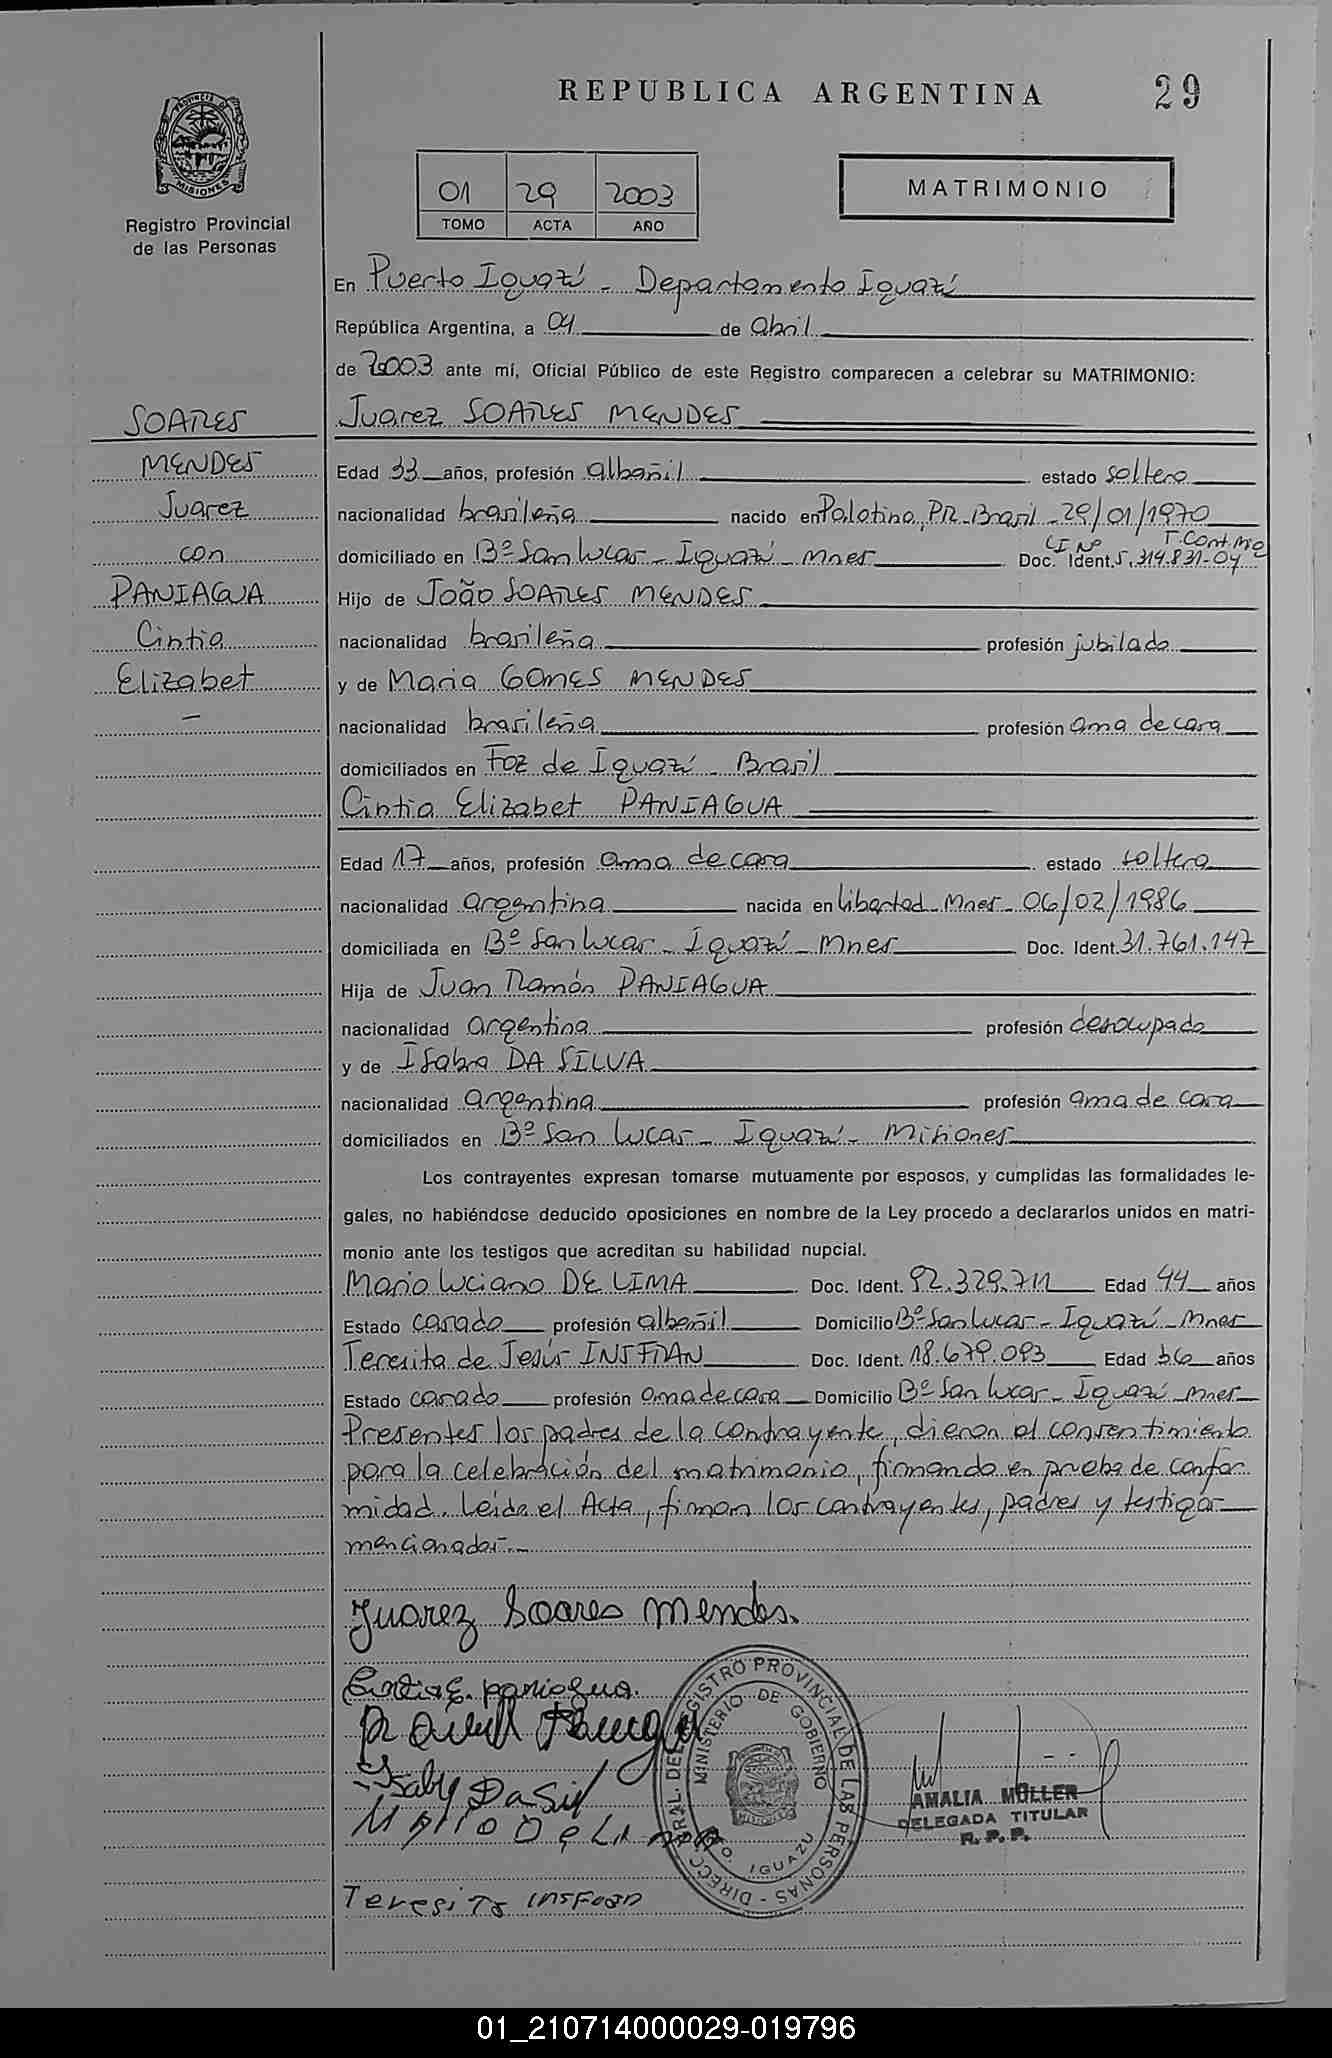 REPUBLICA ARGENTINA
29
PROVINCIA DE MISIONES
Registro Provincial
de las Personas
01 29 2003
TOMO ACTA AÑO
MATRIMONIO
En Puerto Iguazú - Departamento Iguazú
República Argentina, a 04 de abril
de 2003 ante mí, Oficial Público de este Registro comparecen a celebrar su MATRIMONIO:
SOARES
MENDES
Juarez
con
PANIAGUA
Cintia
Elizabet
-
Juarez SOARES MENDES
Edad 33 años, profesión albañil estado soltero
nacionalidad brasileña nacido en Palotina, PR - Brasil - 29/01/1970
domiciliado en Bº San Lucas - Iguazú - Mnes Doc. Ident. CI Nº 5.314.831-04 T. Cont. Mig
Hijo de João SOARES MENDES
nacionalidad brasileña profesión jubilado
y de Maria GOMES MENDES
nacionalidad brasileña profesión ama de casa
domiciliados en Foz de Iguazú - Brasil
Cintia Elizabet PANIAGUA
Edad 17 años, profesión ama de casa estado soltera
nacionalidad argentina nacida en Libertad - Mnes - 06/02/1986
domiciliada en Bº San Lucas - Iguazú - Mnes Doc. Ident. 31.761.147
Hija de Juan Ramón PANIAGUA
nacionalidad argentina profesión desocupado
y de Isabra DA SILVA
nacionalidad argentina profesión ama de casa
domiciliados en Bº San Lucas - Iguazú - Misiones
Los contrayentes expresan tomarse mutuamente por esposos, y cumplidas las formalidades le-
gales, no habiéndose deducido oposiciones en nombre de la Ley procedo a declararlos unidos en matri-
monio ante los testigos que acreditan su habilidad nupcial.
Mario Luciano DE LIMA Doc. Ident. 92.329.711 Edad 44 años
Estado casado profesión albañil Domicilio Bº San Lucas - Iguazú - Mnes
Teresita de Jesús INSFRAN Doc. Ident. 18.679.093 Edad 36 años
Estado casado profesión ama de casa Domicilio Bº San Lucas - Iguazú - Mnes
Presentes los padres de la contrayente, dieron el consentimiento
para la celebración del matrimonio, firmando en prueba de confor
midad. Leída el Acta, firman los contrayentes, padres y testigos
mencionados.-
Juarez Soares Mendes.
Cintia E. paniagua.
Isaby Da Sil
Mario De Lima
Teresita INSFran
DIRECC. GRAL. DEL REGISTRO PROVINCIAL DE LAS PERSONAS -
MINISTERIO DE GOBIERNO
PTO. IGUAZU
AMALIA MÜLLER
DELEGADA TITULAR
R. P. P.
01_210714000029-019796